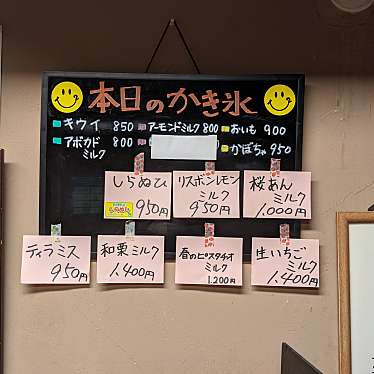 本日のかき氷
キウイ 850 アーモンドミルク 800 おいも 900
アボカド 800 かぼちゃ 950
ミルク
しらぬひ
950円
リスボンレモン
ミルク
950円
桜あん
ミルク
1.000円
ティラミス
950円
和栗ミルク
1.400円
春のピスタチオ
ミルク
1.200円
生いちご
ミルク
1.400円